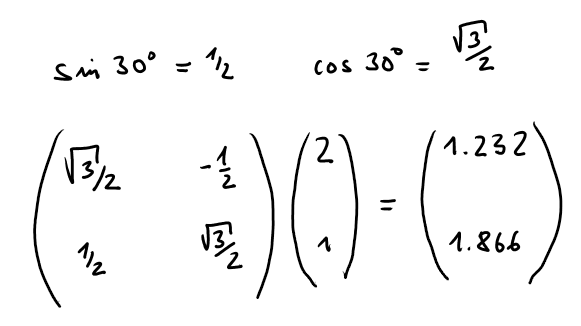 sin 30° = 1/2 cos 30° = √3/2
(√3/2 -1/2) (2) = (1.232)
(1/2 √3/2) (1) (1.866)